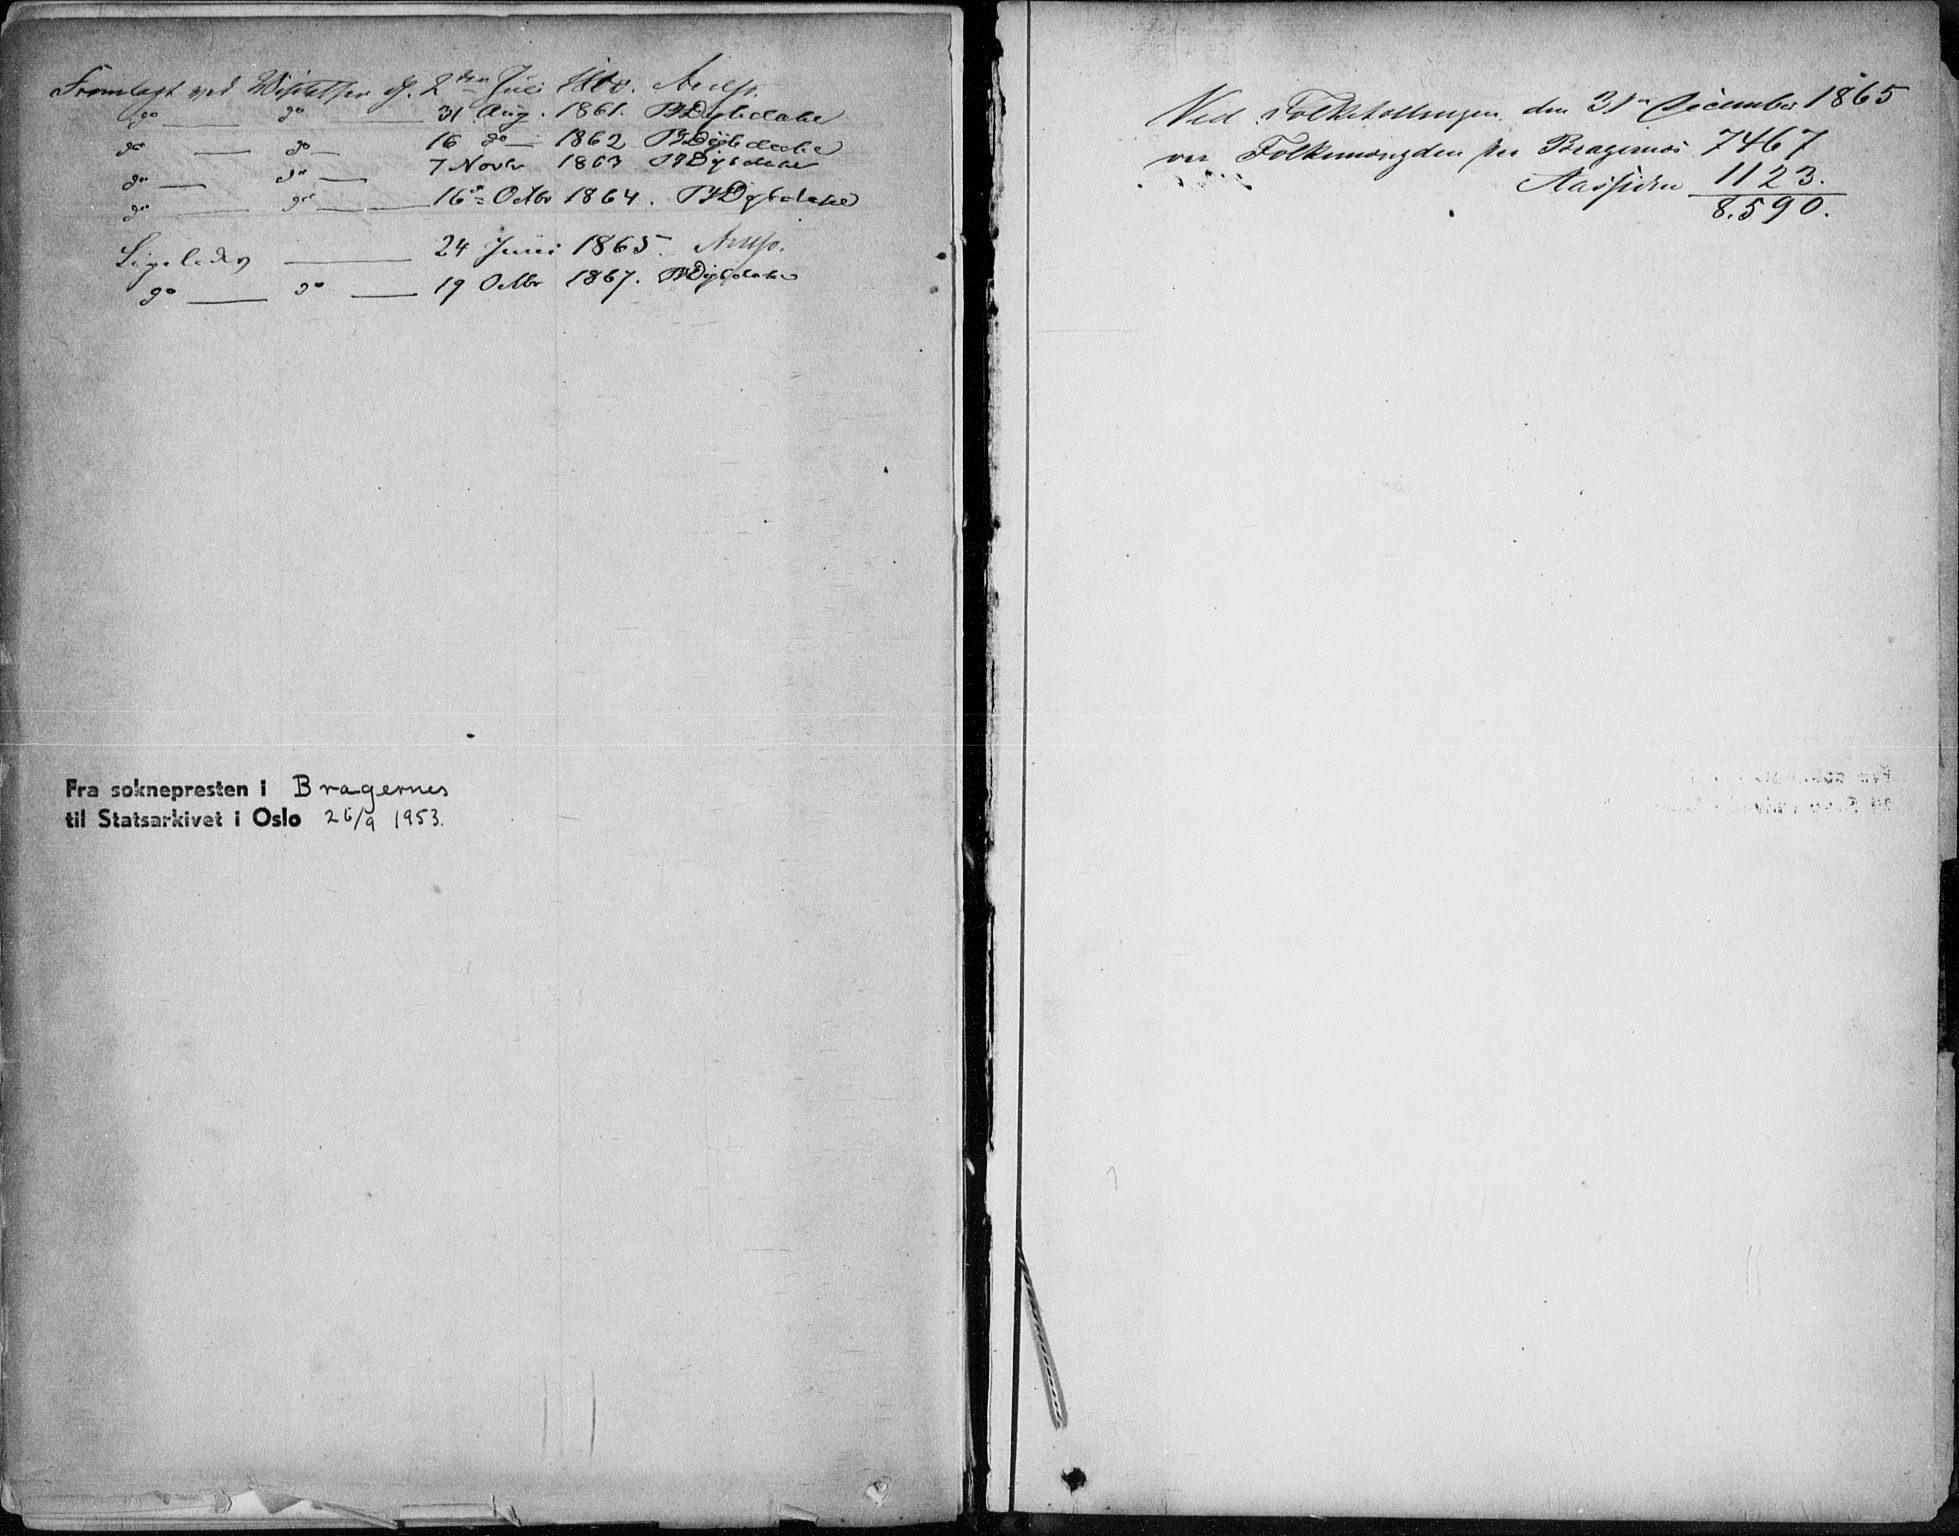 Fremlagt ved Visitatsen d. 2den Juli 1860. Arup.
do do 31 Aug. 1861. Dybdahl
do do 16 do 1862 Dybdahl
do do 7 Novbr 1863 Dybdahl
do do 16de Octbr 1864. Dybdahl
Ligeledes 24 Juni 1865. Arup.
do do 19 Octbr 1867. Dybdahl
Fra soknepresten i Bragernes
til Statsarkivet i Oslo 26/9 1953.
Ved Folketællingen den 31te December 1865
var Folkemængden paa Bragernæs 7467
Aassiden 1123.
8.590.